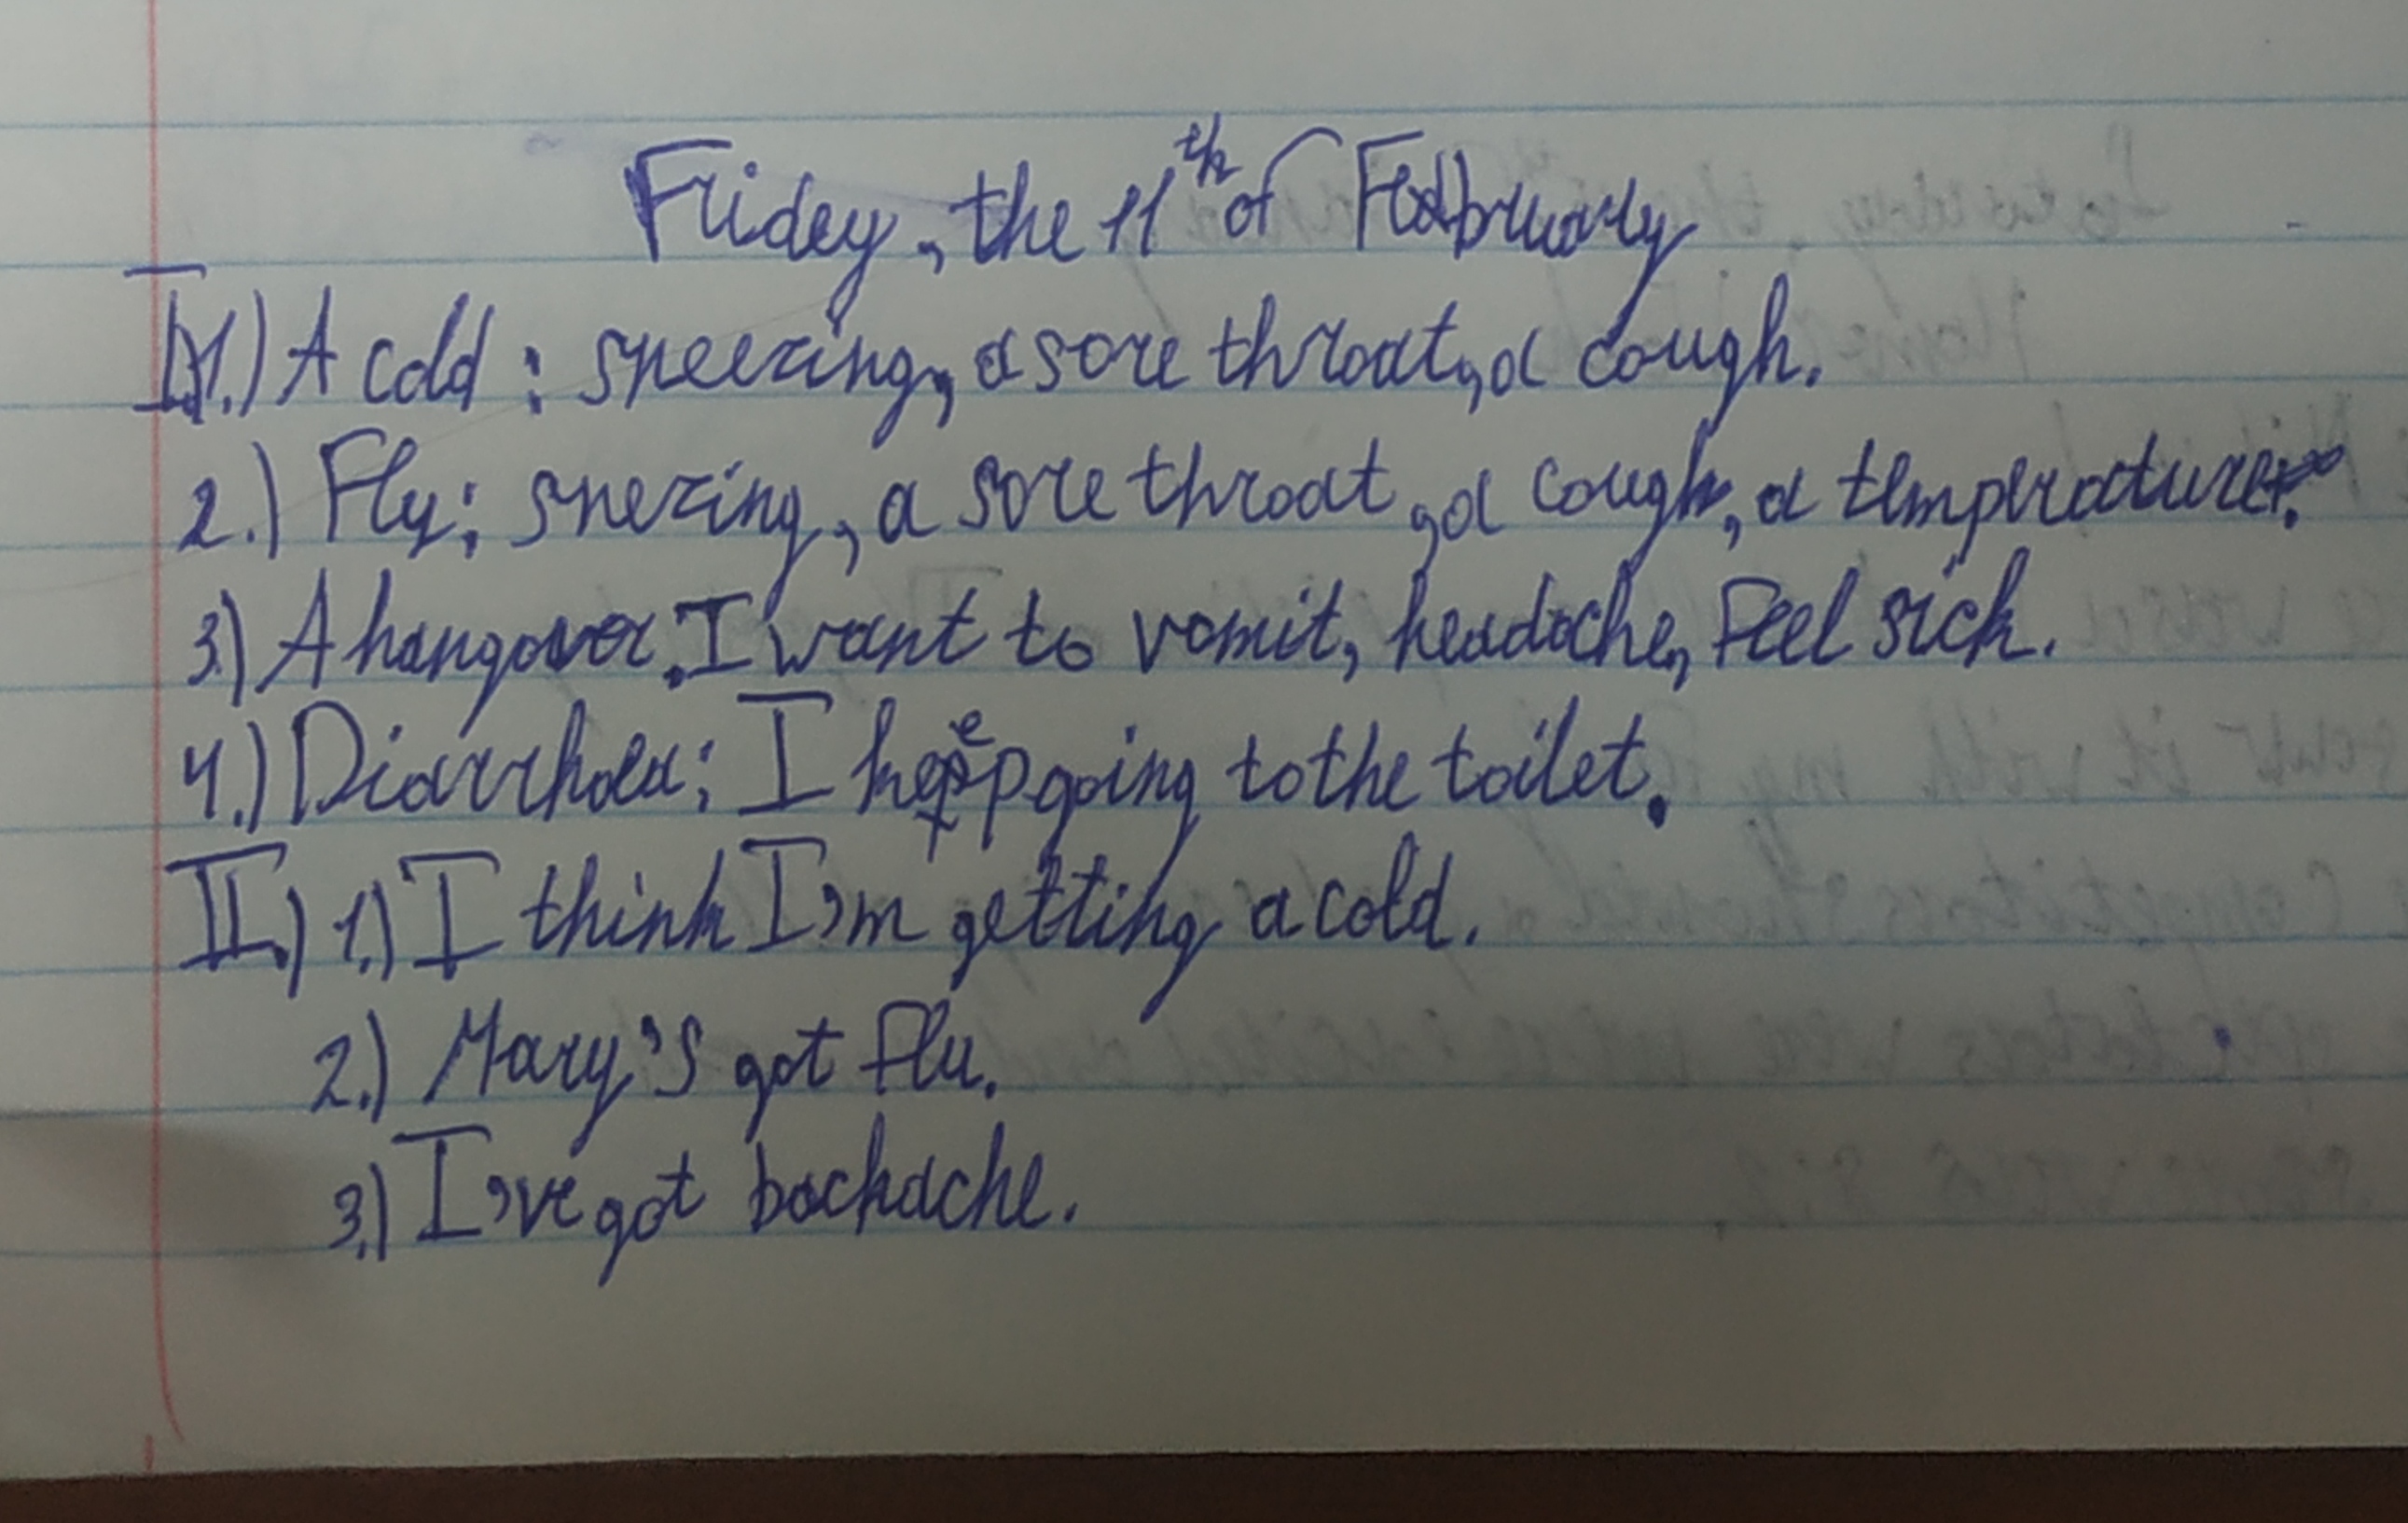 Fridey, the 11th of February
I.)1.) A cold: sneezing, a sore throat, a cough.
2.) Fly: snezing, a sore throat, a cough, a temperature.
3.) A hangover. I want to vomit, headache, feel sick.
4.) Diarrhoea: I keep going to the toilet.
II.) 1.) I think I'm getting a cold.
2.) Mary's got flu.
3.) I've got backache.